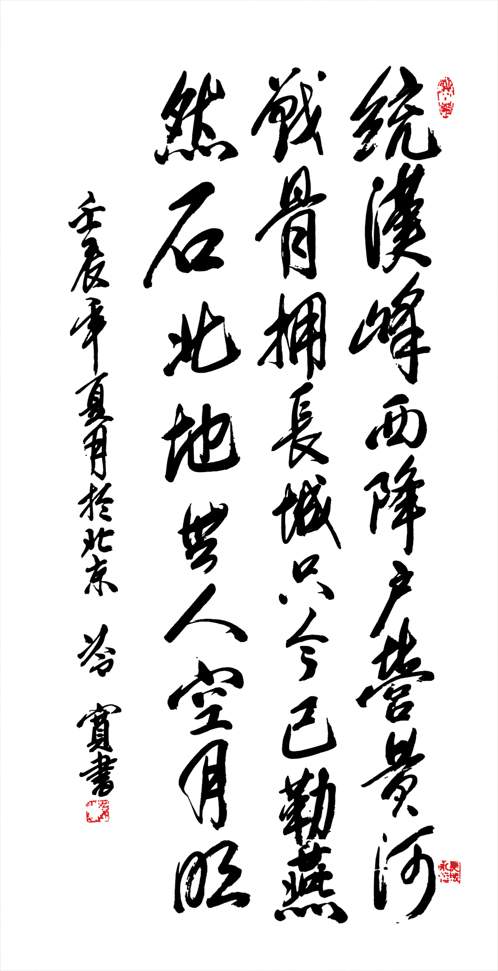 統漢峰西降户營黄河
戰骨拥長城只今已勒燕
然石北地無人空月明
壬辰年夏月於北京 書